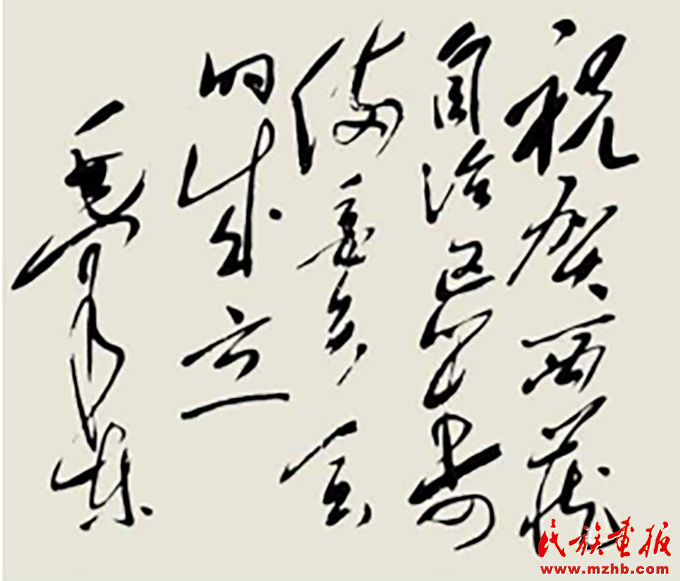 祝贺西藏
自治区筹
備委员会
的成立
毛泽东
民族画报
www.mzhb.com